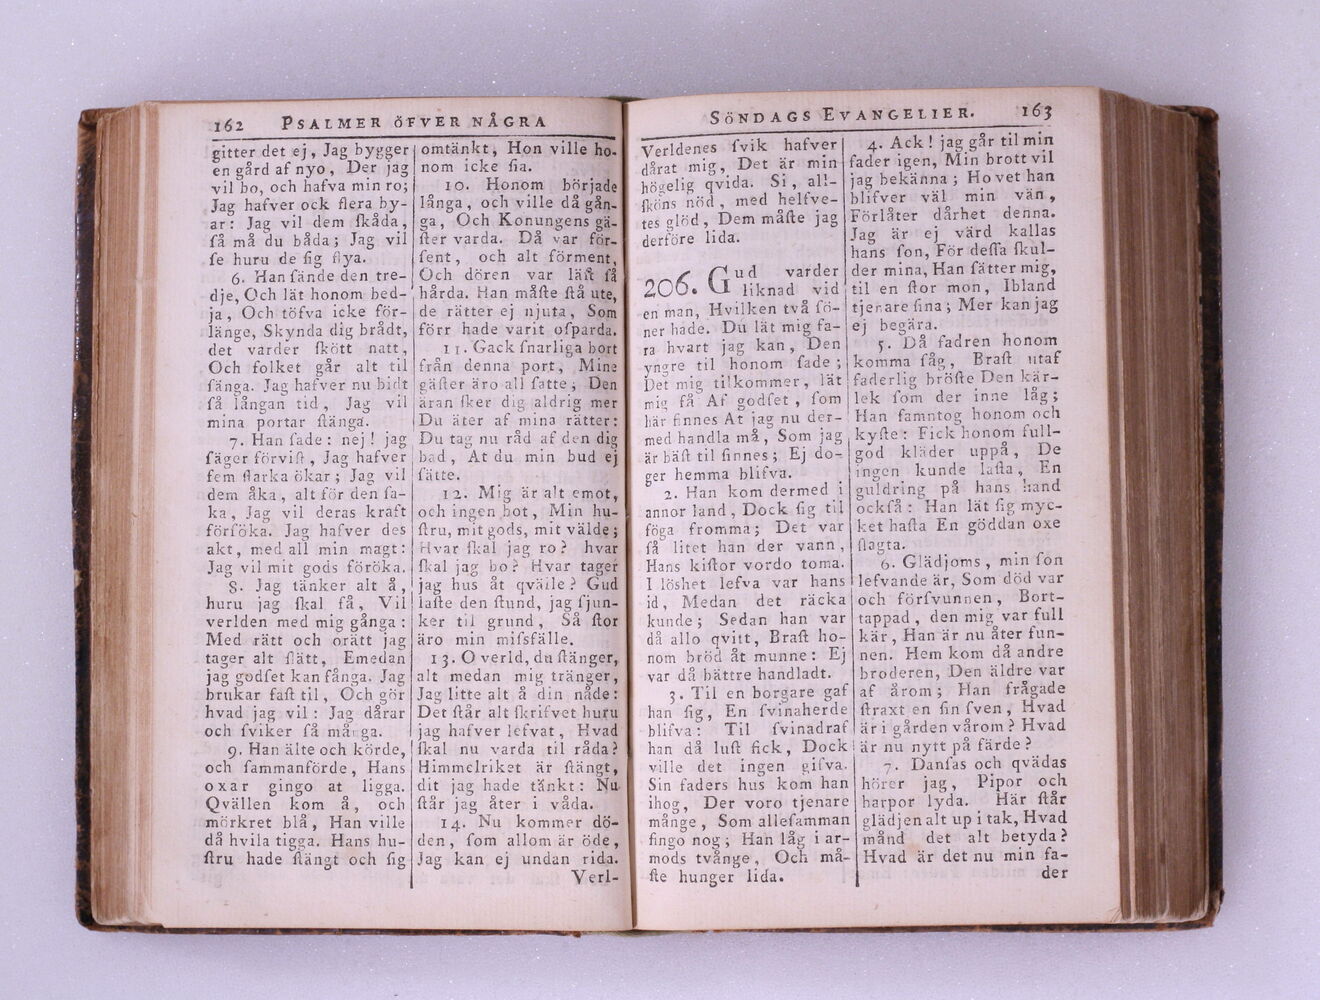 162 PSALMER ÖFVER NÅGRA
gitter det ej, Jag bygger
en gård af nyo, Der jag
vil bo, och hafva min ro;
Jag hafver ock flera by-
ar: Jag vil dem ſkåda,
ſå må du båda; Jag vil
ſe huru de ſig ſlya.
6. Han ſände den tre-
dje, Och lät honom bed-
ja, Och töfva icke för-
länge, Skynda dig brådt,
det varder ſkött natt,
Och folket går alt til
ſänga. Jag hafver nu bidt
ſå långan tid, Jag vil
mina portar ſtänga.
7. Han ſade: nej! jag
ſäger förviſt, Jag hafver
fem ſtarka ökar; Jag vil
dem åka, alt för den ſa-
ka, Jag vil deras kraft
förſöka. Jag hafver des
akt, med all min magt:
Jag vil mit gods föröka.
8. Jag tänker alt å,
huru jag ſkal få, Vil
verlden med mig gånga:
Med rätt och orätt jag
tager alt ſlätt, Emedan
jag godſet kan fånga. Jag
brukar faſt til, Och gör
hvad jag vil: Jag dårar
och ſviker ſå många.
9. Han älte och körde,
och ſammanförde, Hans
oxar gingo at ligga.
Qvällen kom å, och
mörkret blå, Han ville
då hvila tigga. Hans hu-
ſtru hade ſtängt och ſig
omtänkt, Hon ville ho-
nom icke ſia.
10. Honom började
långa, och ville då gån-
ga, Och Konungens gä-
ſter varda. Då var för-
ſent, och alt förment,
Och dören var läſt ſå
hårda. Han måſte ſtå ute,
de rätter ej njuta, Som
förr hade varit ofparda.
11. Gack ſnarliga bort
från denna port, Mine
gäſter äro all ſatte; Den
äran ſker dig aldrig mer
Du äter af mina rätter:
Du tag nu råd af den dig
bad, At du min bud ej
ſätte.
12. Mig är alt emot,
och ingen bot, Min hu-
ſtru, mit gods, mit välde;
Hvar ſkal jag ro? hvar
ſkal jag bo? Hvar tager
jag hus åt qvälle? Gud
laſte den ſtund, jag ſjun-
ker til grund, Så ſtor
äro min miſsfälle.
13. O verld, du ſtänger,
alt medan mig tränger,
Jag litte alt å din nåde:
Det ſtår alt ſkrifvet huru
jag hafver lefvat, Hvad
ſkal nu varda til råda?
Himmelriket är ſtängt,
dit jag hade tänkt: Nu
ſtår jag åter i våda.
14. Nu kommer dö-
den, ſom allom är öde,
Jag kan ej undan rida.
Verl-
SÖNDAGS EVANGELIER. 163
Verldenes ſvik hafver
dårat mig, Det är min
högelig qvida. Si, all-
ſköns nöd, med helfve-
tes glöd, Dem måſte jag
derföre lida.
206. Gud varder
liknad vid
en man, Hvilken två ſö-
ner hade. Du lät mig fa-
ra hvart jag kan, Den
yngre til honom ſade;
Det mig tilkommer, lät
mig få Af godſet, ſom
här finnes At jag nu der-
med handla må, Som jag
är bäſt til finnes; Ej do-
ger hemma blifva.
2. Han kom dermed i
annor land, Dock ſig til
föga fromma; Det var
ſå litet han der vann,
Hans kiſtor vordo toma.
I löshet lefva var hans
id, Medan det räcka
kunde; Sedan han var
då allo qvitt, Braſt ho-
nom bröd åt munne: Ej
var då bättre handladt.
3. Til en borgare gaf
han ſig, En ſvinaherde
blifva: Til ſvinadraf
han då luſt fick, Dock
ville det ingen gifva.
Sin faders hus kom han
ihog, Der voro tjenare
månge, Som alleſamman
fingo nog; Han låg i ar-
mods tvånge, Och må-
ſte hunger lida.
4. Ack! jag går til min
fader igen, Min brott vil
jag bekänna; Ho vet han
blifver väl min vän,
Förlåter dårhet denna.
Jag är ej värd kallas
hans ſon, För deſſa ſkul-
der mina, Han ſätter mig,
til en ſtor mon, Ibland
tjenare ſina; Mer kan jag
ej begära.
5. Då fadren honom
komma ſåg, Braſt utaf
faderlig bröſte Den kär-
lek ſom der inne låg;
Han famntog honom och
kyſte: Fick honom full-
god kläder uppå, De
ingen kunde laſta, En
guldring på hans hand
ockſå: Han lät ſig myc-
ket haſta En göddan oxe
ſlagta.
6. Glädjoms, min ſon
lefvande är, Som död var
och förſvunnen, Bort-
tappad, den mig var full
kär, Han är nu åter fun-
nen. Hem kom då andre
broderen, Den äldre var
af årom; Han frågade
ſtraxt en ſin ſven, Hvad
är i gården vårom? Hvad
är nu nytt på färde?
7. Danſas och qvädas
hörer jag, Pipor och
harpor lyda. Här ſtår
glädjen alt up i tak, Hvad
månd det alt betyda?
Hvad är det nu min fa-
der